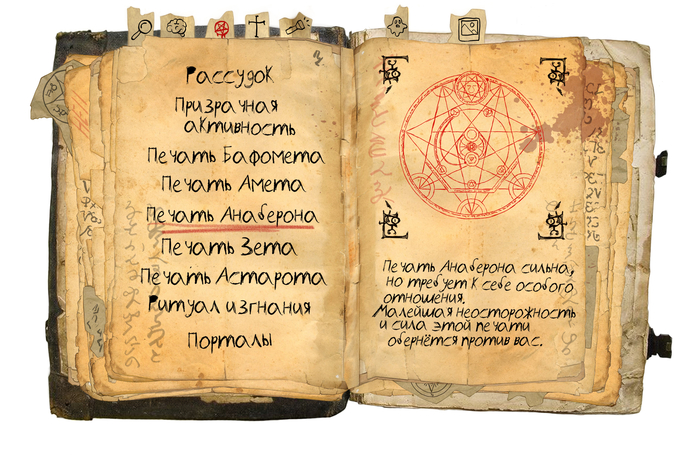 Рассудок
Призрачная
активность
Печать Бафомета
Печать Амета
Печать Анаберона
Печать Зета
Печать Астарота
Ритуал изгнания
Порталы
Печать Анаберона сильна,
но требует к себе особого
отношения.
Малейшая неосторожность
и сила этой печати
обернётся против вас.